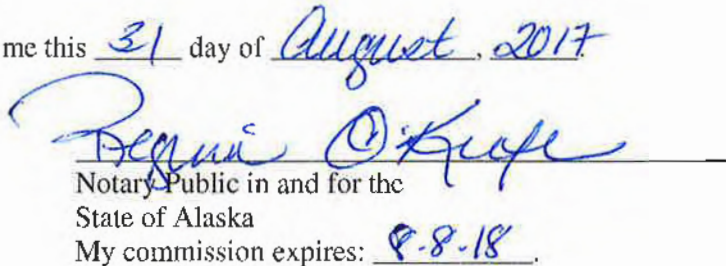 me this 31 day of August, 2017
Regina O'Keefe
Notary Public in and for the
State of Alaska
My commission expires: 8-8-18.